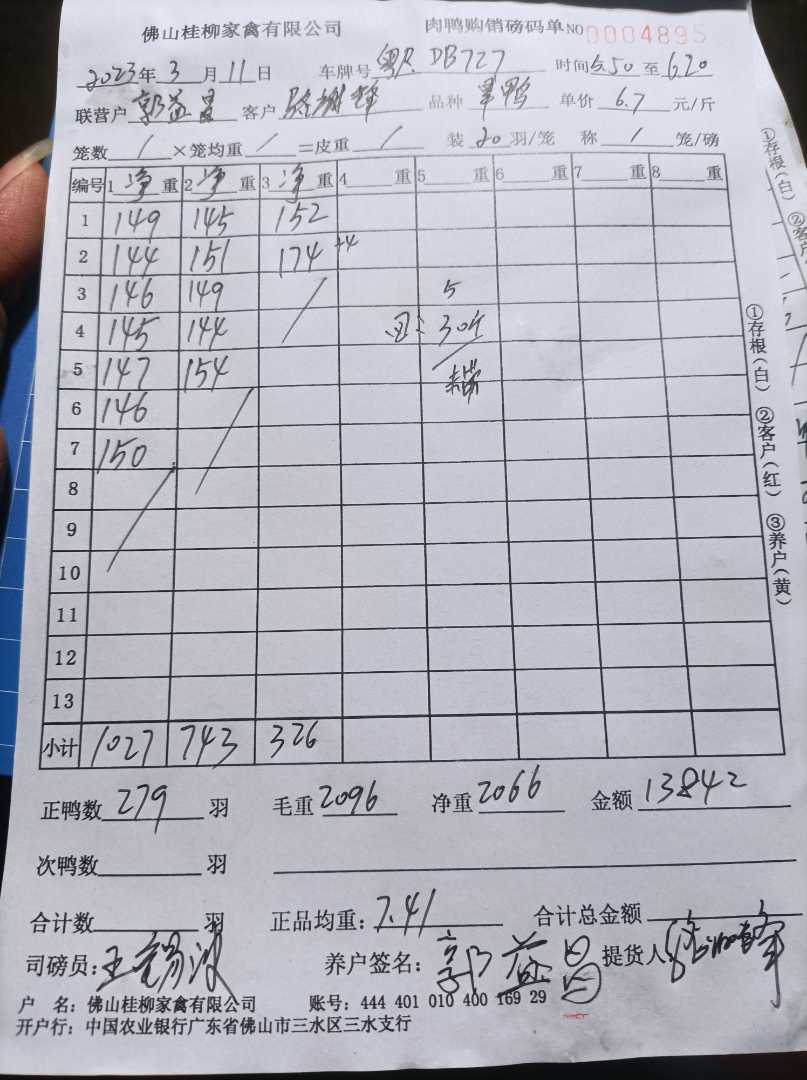 佛山桂柳家禽有限公司 肉鸭购销磅码单 NO 0004895
2023年3月11日 车牌号 粤R DB727 时间 5:50 至 6:20
联营户 郭益昌 客户 品种 单价 6.7 元/斤
笼数 / ×笼均重 / =皮重 / 装 20 羽/笼 称 / 笼/磅
编号 1 净 重 2 净 重 3 净 重 4 重 5 重 6 重 7 重 8 重
1 149 145 152
2 144 151 174 +4
3 146 149 / 5
4 145 144 30斤
5 147 154
6 146
7 150
8
9
10
11
12
13
小计 1027 743 326
正鸭数 279 羽 毛重 2096 净重 2066 金额 13842
次鸭数 羽
合计数 羽 正品均重: 7.41 合计总金额
司磅员: 王 养户签名: 郭益昌 提货人
户 名: 佛山桂柳家禽有限公司 账号: 444 401 010 400 169 29
开户行: 中国农业银行广东省佛山市三水区三水支行
①存根(白) ②客户(红) ③养户(黄)
①存根(白) ②客户